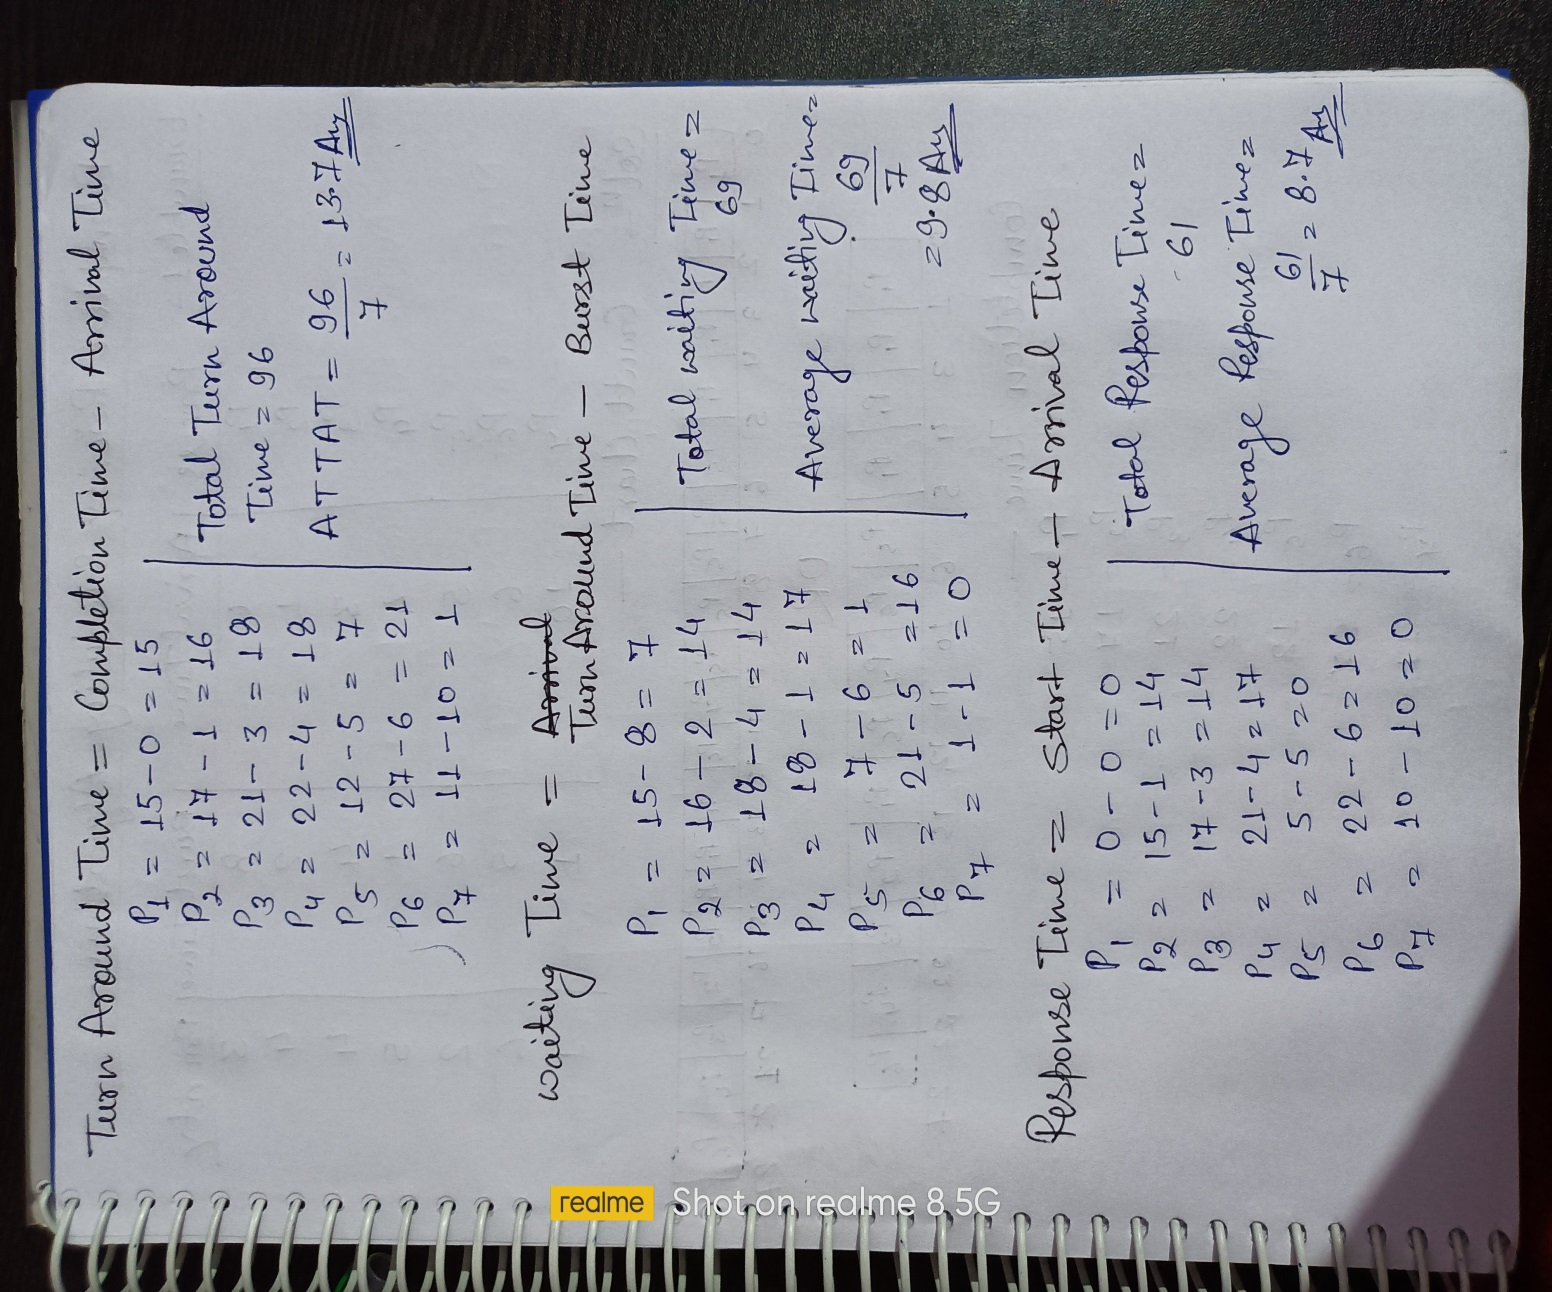 Turn Around Time = Completion Time - Arrival Time
P1 = 15-0 = 15
P2 = 17-1 = 16
P3 = 21-3 = 18
P4 = 22-4 = 18
P5 = 12-5 = 7
P6 = 27-6 = 21
P7 = 11-10 = 1
Total Turn Around
Time = 96
ATTAT = 96/7 = 13.7 Ans
Waiting Time = Arrival
Turn Around Time - Burst Time
P1 = 15-8 = 7
P2 = 16-2 = 14
P3 = 18-4 = 14
P4 = 18-1 = 17
P5 = 7-6 = 1
P6 = 21-5 = 16
P7 = 1-1 = 0
Total waiting Time =
69
Average waiting Time =
69/7
= 9.8 Ans
Response Time = Start Time - Arrival Time
P1 = 0-0 = 0
P2 = 15-1 = 14
P3 = 17-3 = 14
P4 = 21-4 = 17
P5 = 5-5 = 0
P6 = 22-6 = 16
P7 = 10-10 = 0
Total Response Time =
61
Average Response Time =
61/7 = 8.7 Ans
realme Shot on realme 8 5G